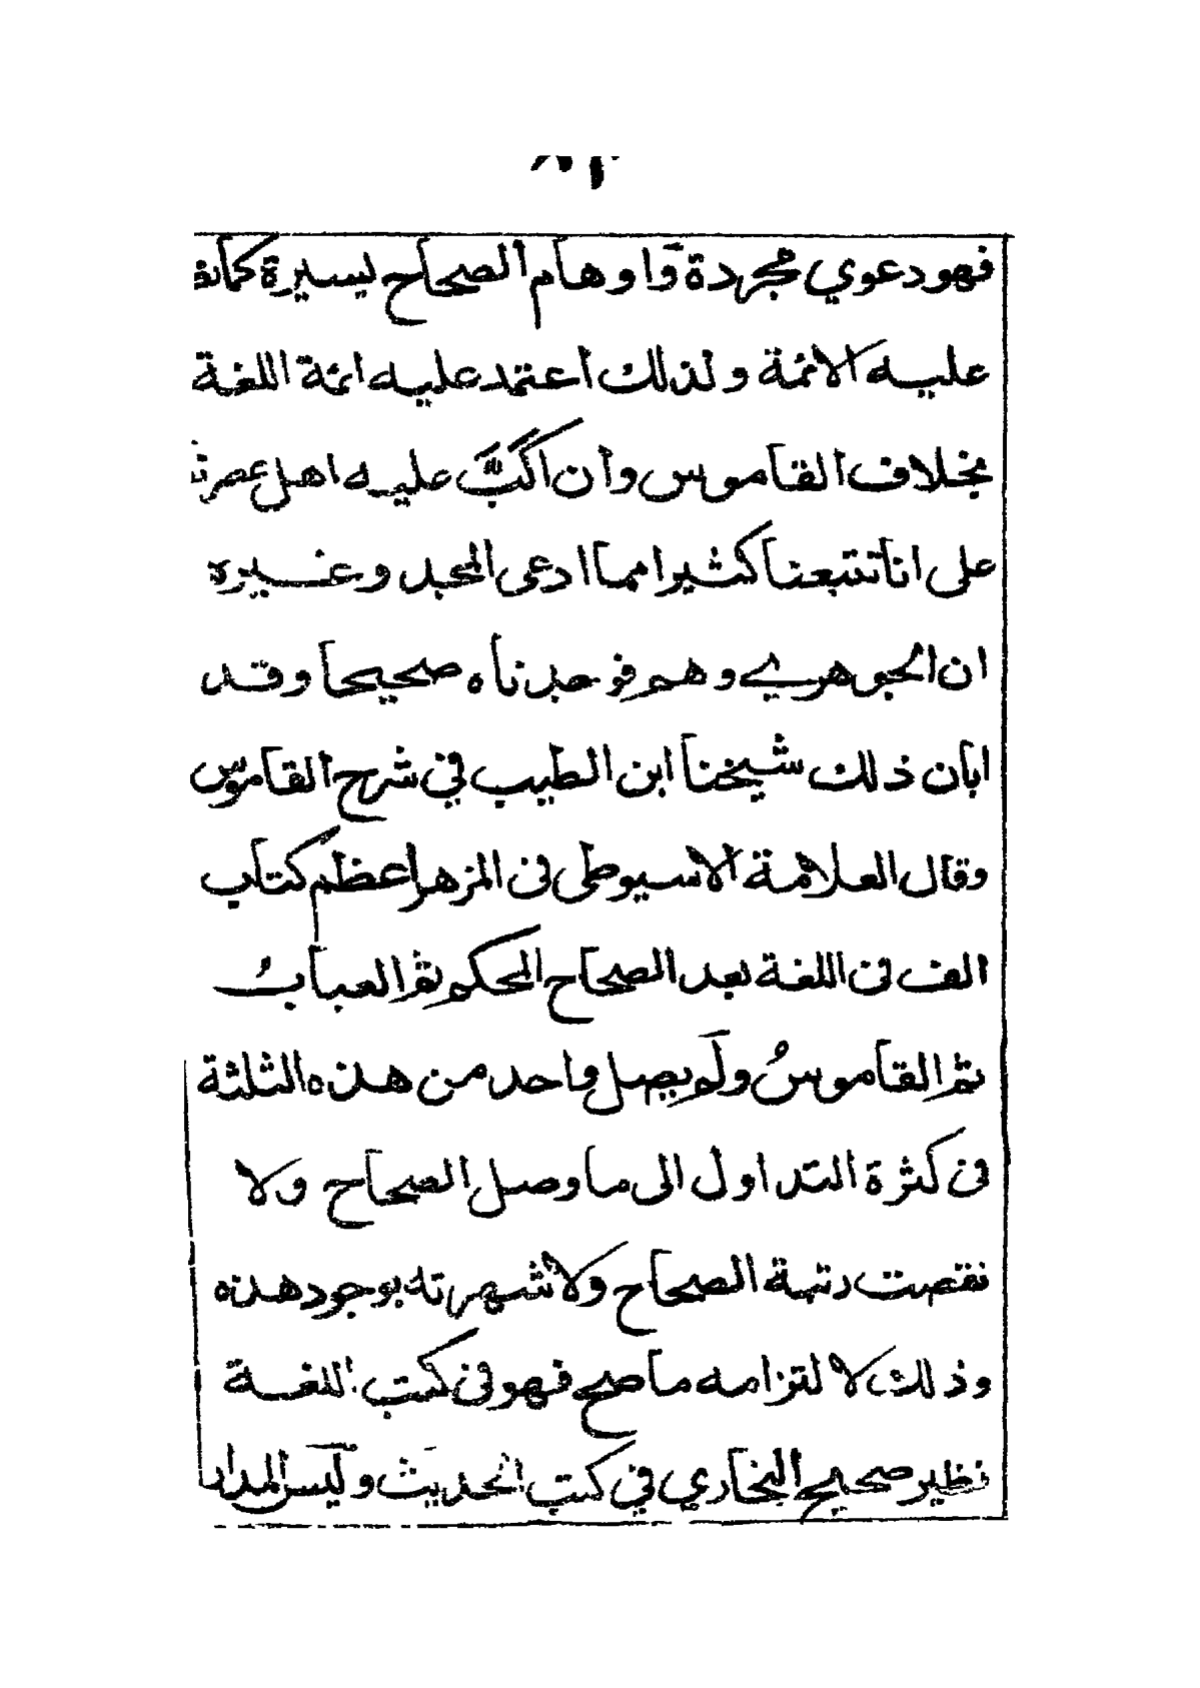 فهو دعوي مجردة وَاوهام الصحاح يسيرة كما نبه
عليه الائمة ولذلك اعتمد عليه ائمة اللغة
بخلاف القاموس وان اكبَّ عليه اهل عصرنا
على انا تتبعنا كثيرا مما ادعى المجد وغيره
ان الجوهري وهم فوجدناه صحيحا وقد
ابان ذلك شيخنا ابن الطيب في شرح القاموس
وقال العلامة الاسيوطى فى المزهر اعظم كتاب
الف فى اللغة بعد الصحاح المحكم ثم العبابُ
ثم القاموسُ ولم يصل واحد من هذه الثلثة
فى كثرة التداول الى ما وصل الصحاح ولا
نقصت رتبة الصحاح ولا شهرته بوجود هذه
وذلك لالتزامه ما صح فهو فى كتب اللغة
نظير صحيح البخاري في كتب الحديث وليس المدار